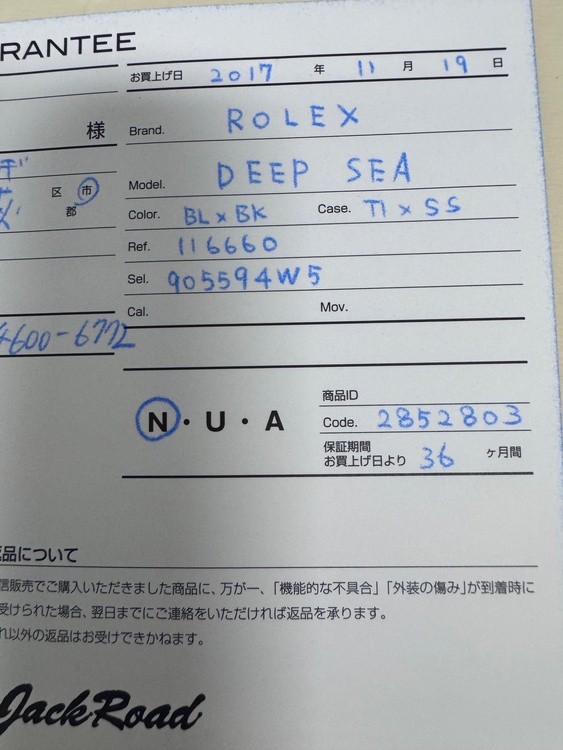 RANTEE
お買上げ日 2017 年 11 月 19 日
様
Brand. ROLEX
Model. DEEP SEA
区 市
郡
Color. BL×BK Case. TI×SS
Ref. 116660
Sel. 905594W5
Cal. Mov.
4600-6772
N・U・A
商品ID
Code. 2852803
保証期間
お買上げ日より 36 ヶ月間
返品について
信販売でご購入いただきました商品に、万が一、「機能的な不具合」「外装の傷み」が到着時に
受けられた場合、翌日までにご連絡をいただければ返品を承ります。
れ以外の返品はお受けできかねます。
JackRoad